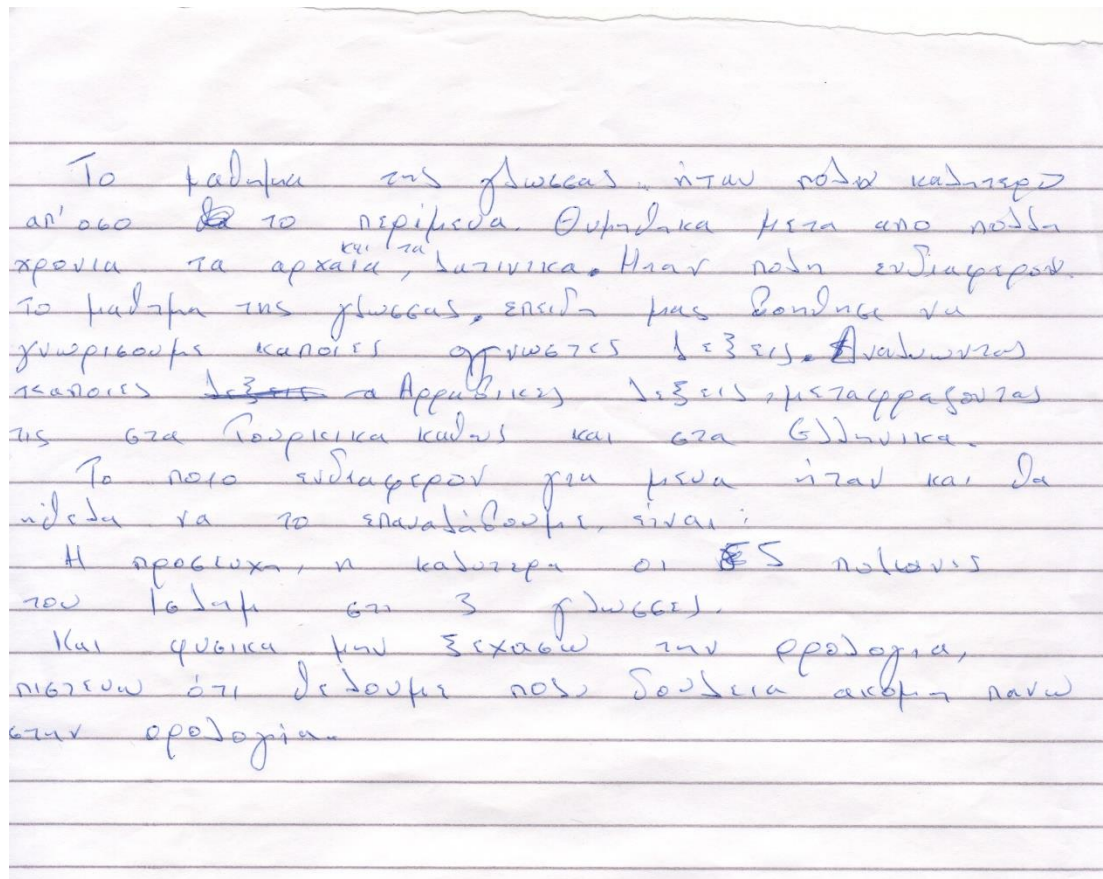 Το μαθημα της γλωσσας. ήταν πολυ καλητερο
απ' οσο το περίμενα. Θυμηθηκα μετα απο πολλη
χρονια τα αρχαία, και τα λατινικα. Ηταν πολη ενδιαφερον.
το μαθημα της γλωσσας, επειδη μας βοηθησε να
γνωρισουμε καποιες αγνωστες λεξεις. Αναλυωντας
καποιες λεξεις Αρραβικες λεξεις, μεταφραζοντας
τις στα Τουρκικα καθως και στα Ελληνικα.
Το ποιο ενδιαφερον για μενα ήταν και θα
ήθελα να το επαναλάβουμε, είναι:
Η προσευχη, η καλυτερα οι 5 πυλωνις
του Ισλαμ στι 3 γλωσσες.
Και φυσικα μην ξεχασω την ορολογια,
πιστευω ότι θελουμε πολυ δουλεια ακομη πανω
στην ορολογία.